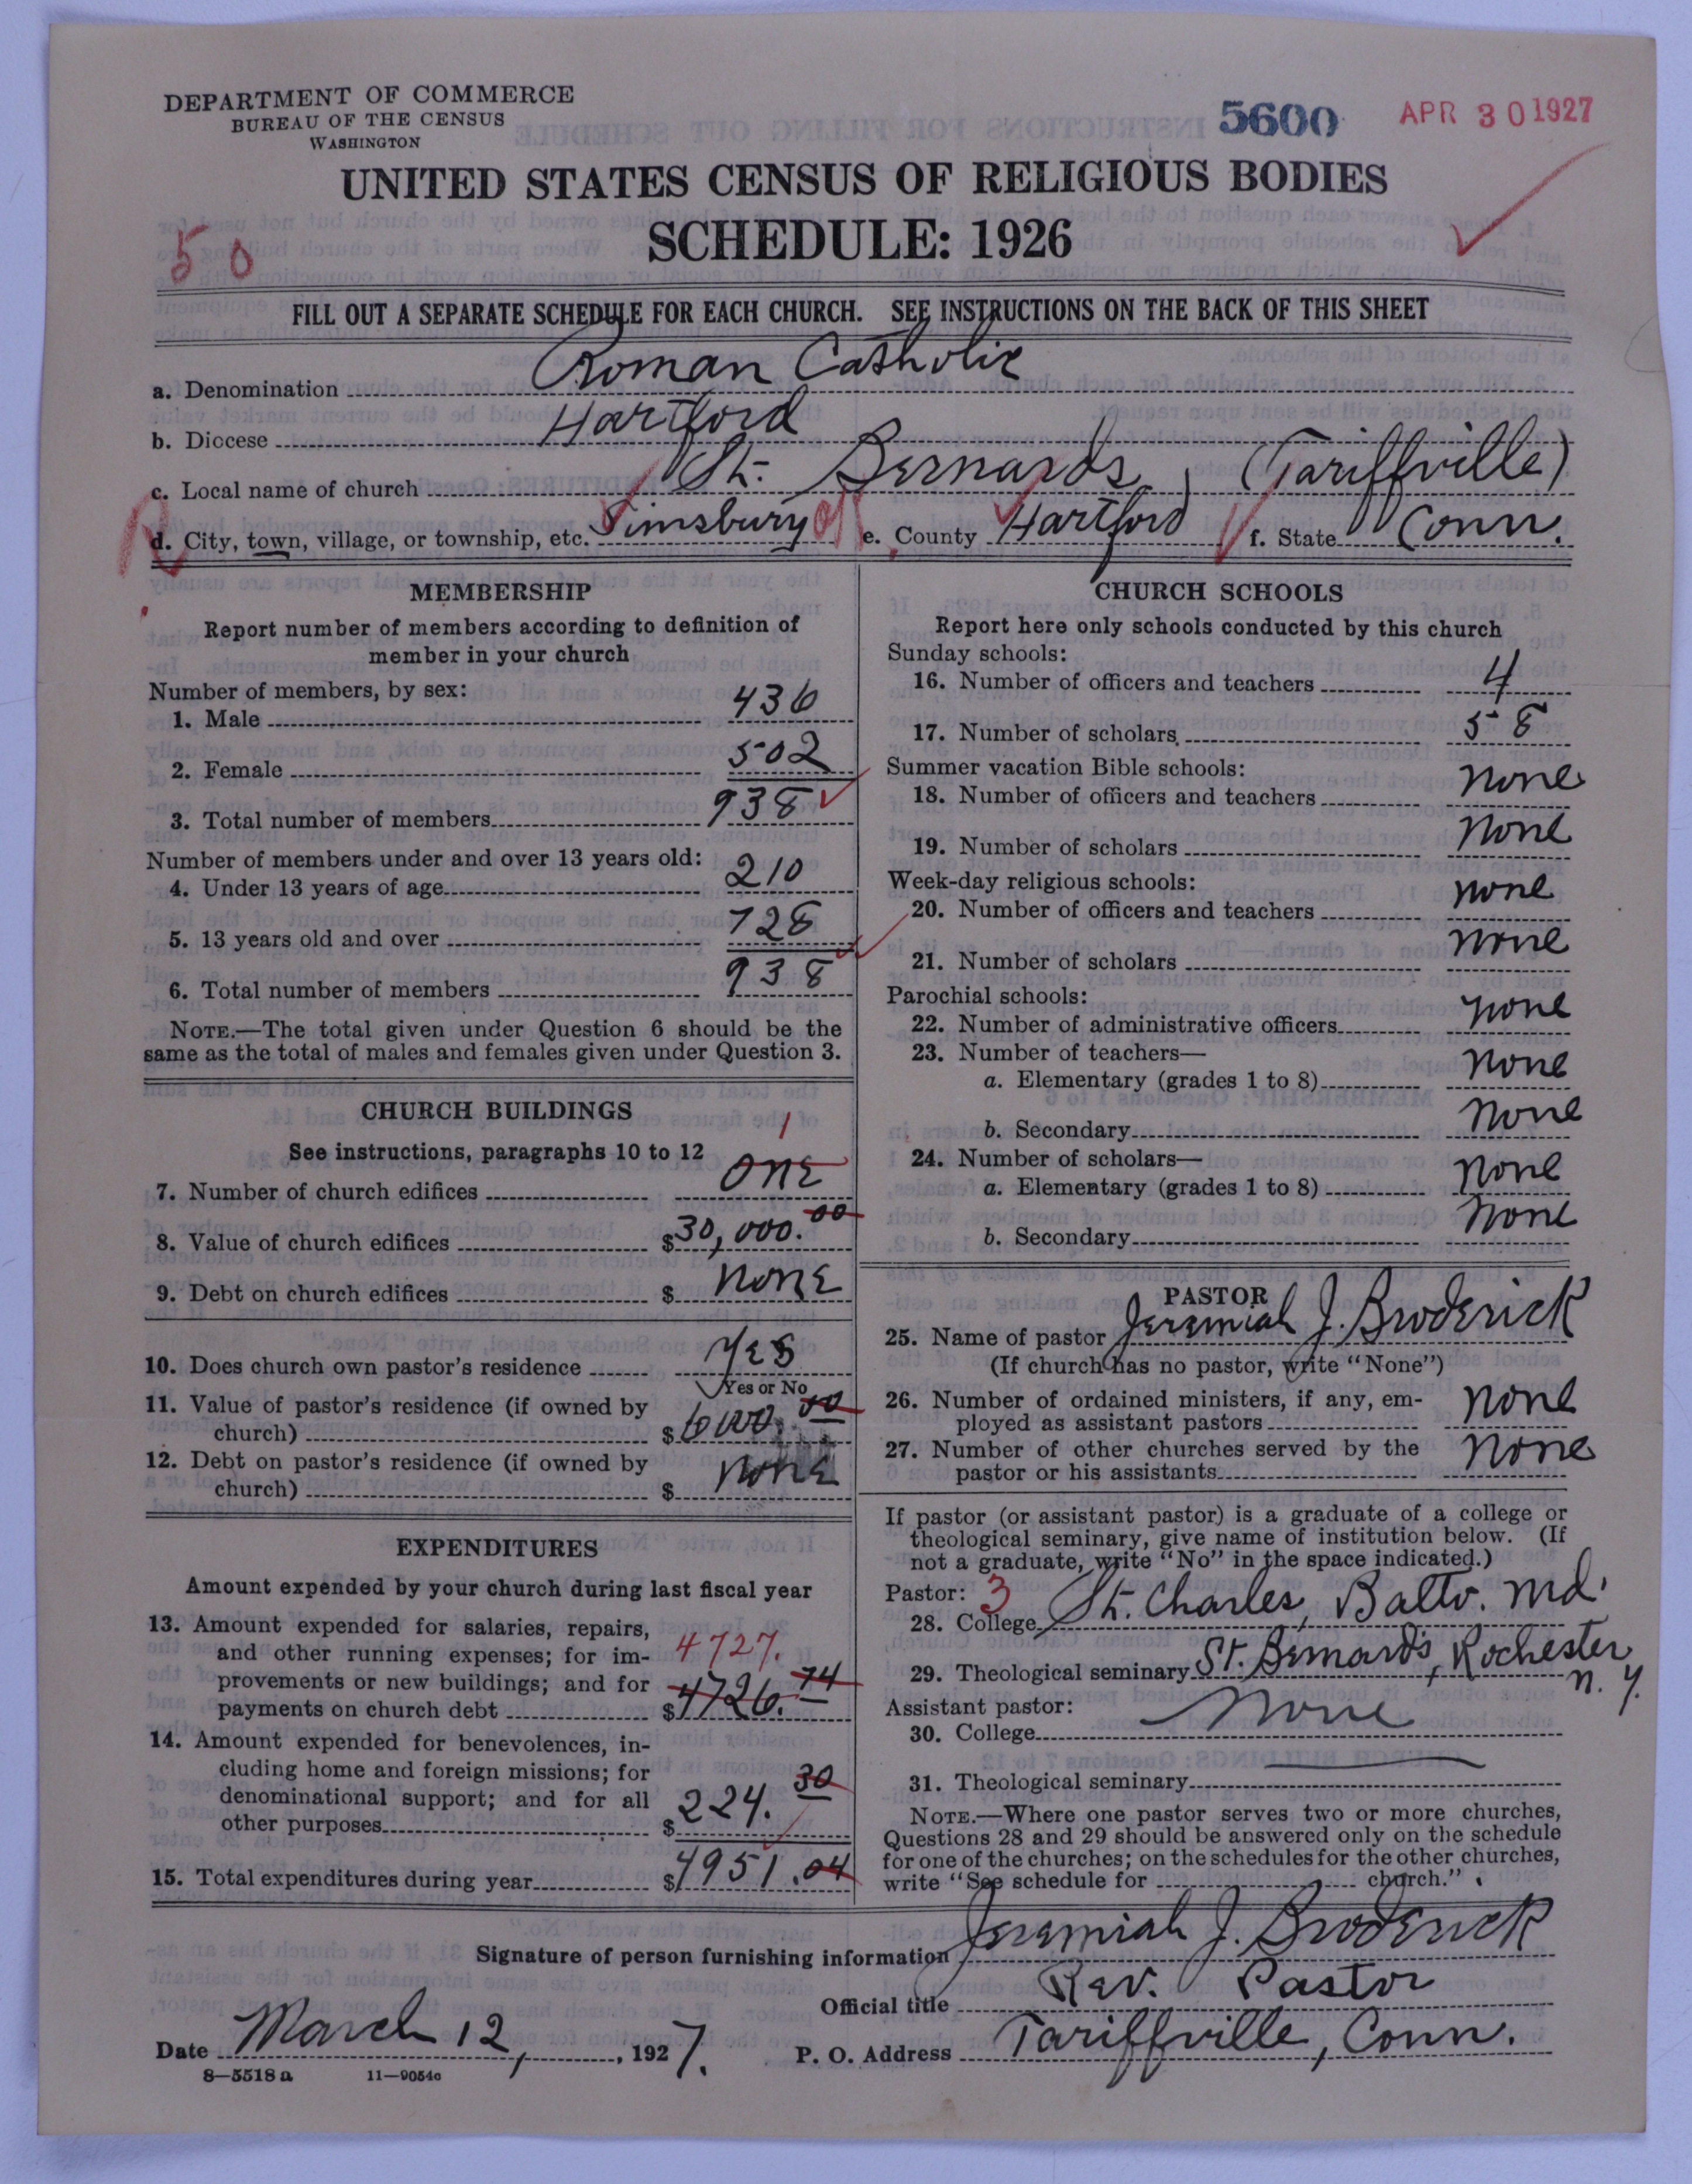 DEPARTMENT OF COMMERCE
BUREAU OF THE CENSUS
WASHINGTON
5600
APR 30 1927
UNITED STATES CENSUS OF RELIGIOUS BODIES
SCHEDULE: 1926
50
FILL OUT A SEPARATE SCHEDULE FOR EACH CHURCH. SEE INSTRUCTIONS ON THE BACK OF THIS SHEET
a. Denomination Roman Catholic
b. Diocese Hartford
c. Local name of church St. Bernards, (Tariffville)
d. City, town, village, or township, etc. Simsbury e. County Hartford f. State Conn.
MEMBERSHIP
Report number of members according to definition of
member in your church
Number of members, by sex:
1. Male 436
2. Female 502
3. Total number of members 938
Number of members under and over 13 years old:
4. Under 13 years of age 210
5. 13 years old and over 728
6. Total number of members 938
NOTE.—The total given under Question 6 should be the
same as the total of males and females given under Question 3.
CHURCH BUILDINGS
See instructions, paragraphs 10 to 12
1
7. Number of church edifices ONE
8. Value of church edifices $30,000.00
9. Debt on church edifices $ NONE
10. Does church own pastor's residence YES
Yes or No
11. Value of pastor's residence (if owned by
church) $6000.00
12. Debt on pastor's residence (if owned by
church) $ NONE
EXPENDITURES
Amount expended by your church during last fiscal year
13. Amount expended for salaries, repairs,
and other running expenses; for im- 4727.
provements or new buildings; and for
payments on church debt $4726.74
14. Amount expended for benevolences, in-
cluding home and foreign missions; for
denominational support; and for all
other purposes $224.30
15. Total expenditures during year $4951.04
CHURCH SCHOOLS
Report here only schools conducted by this church
Sunday schools:
16. Number of officers and teachers 4
17. Number of scholars 58
Summer vacation Bible schools:
18. Number of officers and teachers none
19. Number of scholars none
Week-day religious schools:
20. Number of officers and teachers none
21. Number of scholars none
Parochial schools:
22. Number of administrative officers none
23. Number of teachers—
a. Elementary (grades 1 to 8) none
b. Secondary none
24. Number of scholars—
a. Elementary (grades 1 to 8) none
b. Secondary none
PASTOR
25. Name of pastor Jeremiah J. Broderick
(If church has no pastor, write "None")
26. Number of ordained ministers, if any, em-
ployed as assistant pastors none
27. Number of other churches served by the
pastor or his assistants none
If pastor (or assistant pastor) is a graduate of a college or
theological seminary, give name of institution below. (If
not a graduate, write "No" in the space indicated.)
Pastor: 3
28. College St. Charles, Balto. Md.
29. Theological seminary St. Bernard's, Rochester
N. Y.
Assistant pastor:
30. College none
31. Theological seminary
NOTE.—Where one pastor serves two or more churches,
Questions 28 and 29 should be answered only on the schedule
for one of the churches; on the schedules for the other churches,
write "See schedule for church."
Signature of person furnishing information Jeremiah J. Broderick
Official title Rev. Pastor
Date March 12, 1927. P. O. Address Tariffville, Conn.
8—5518a 11—9054a